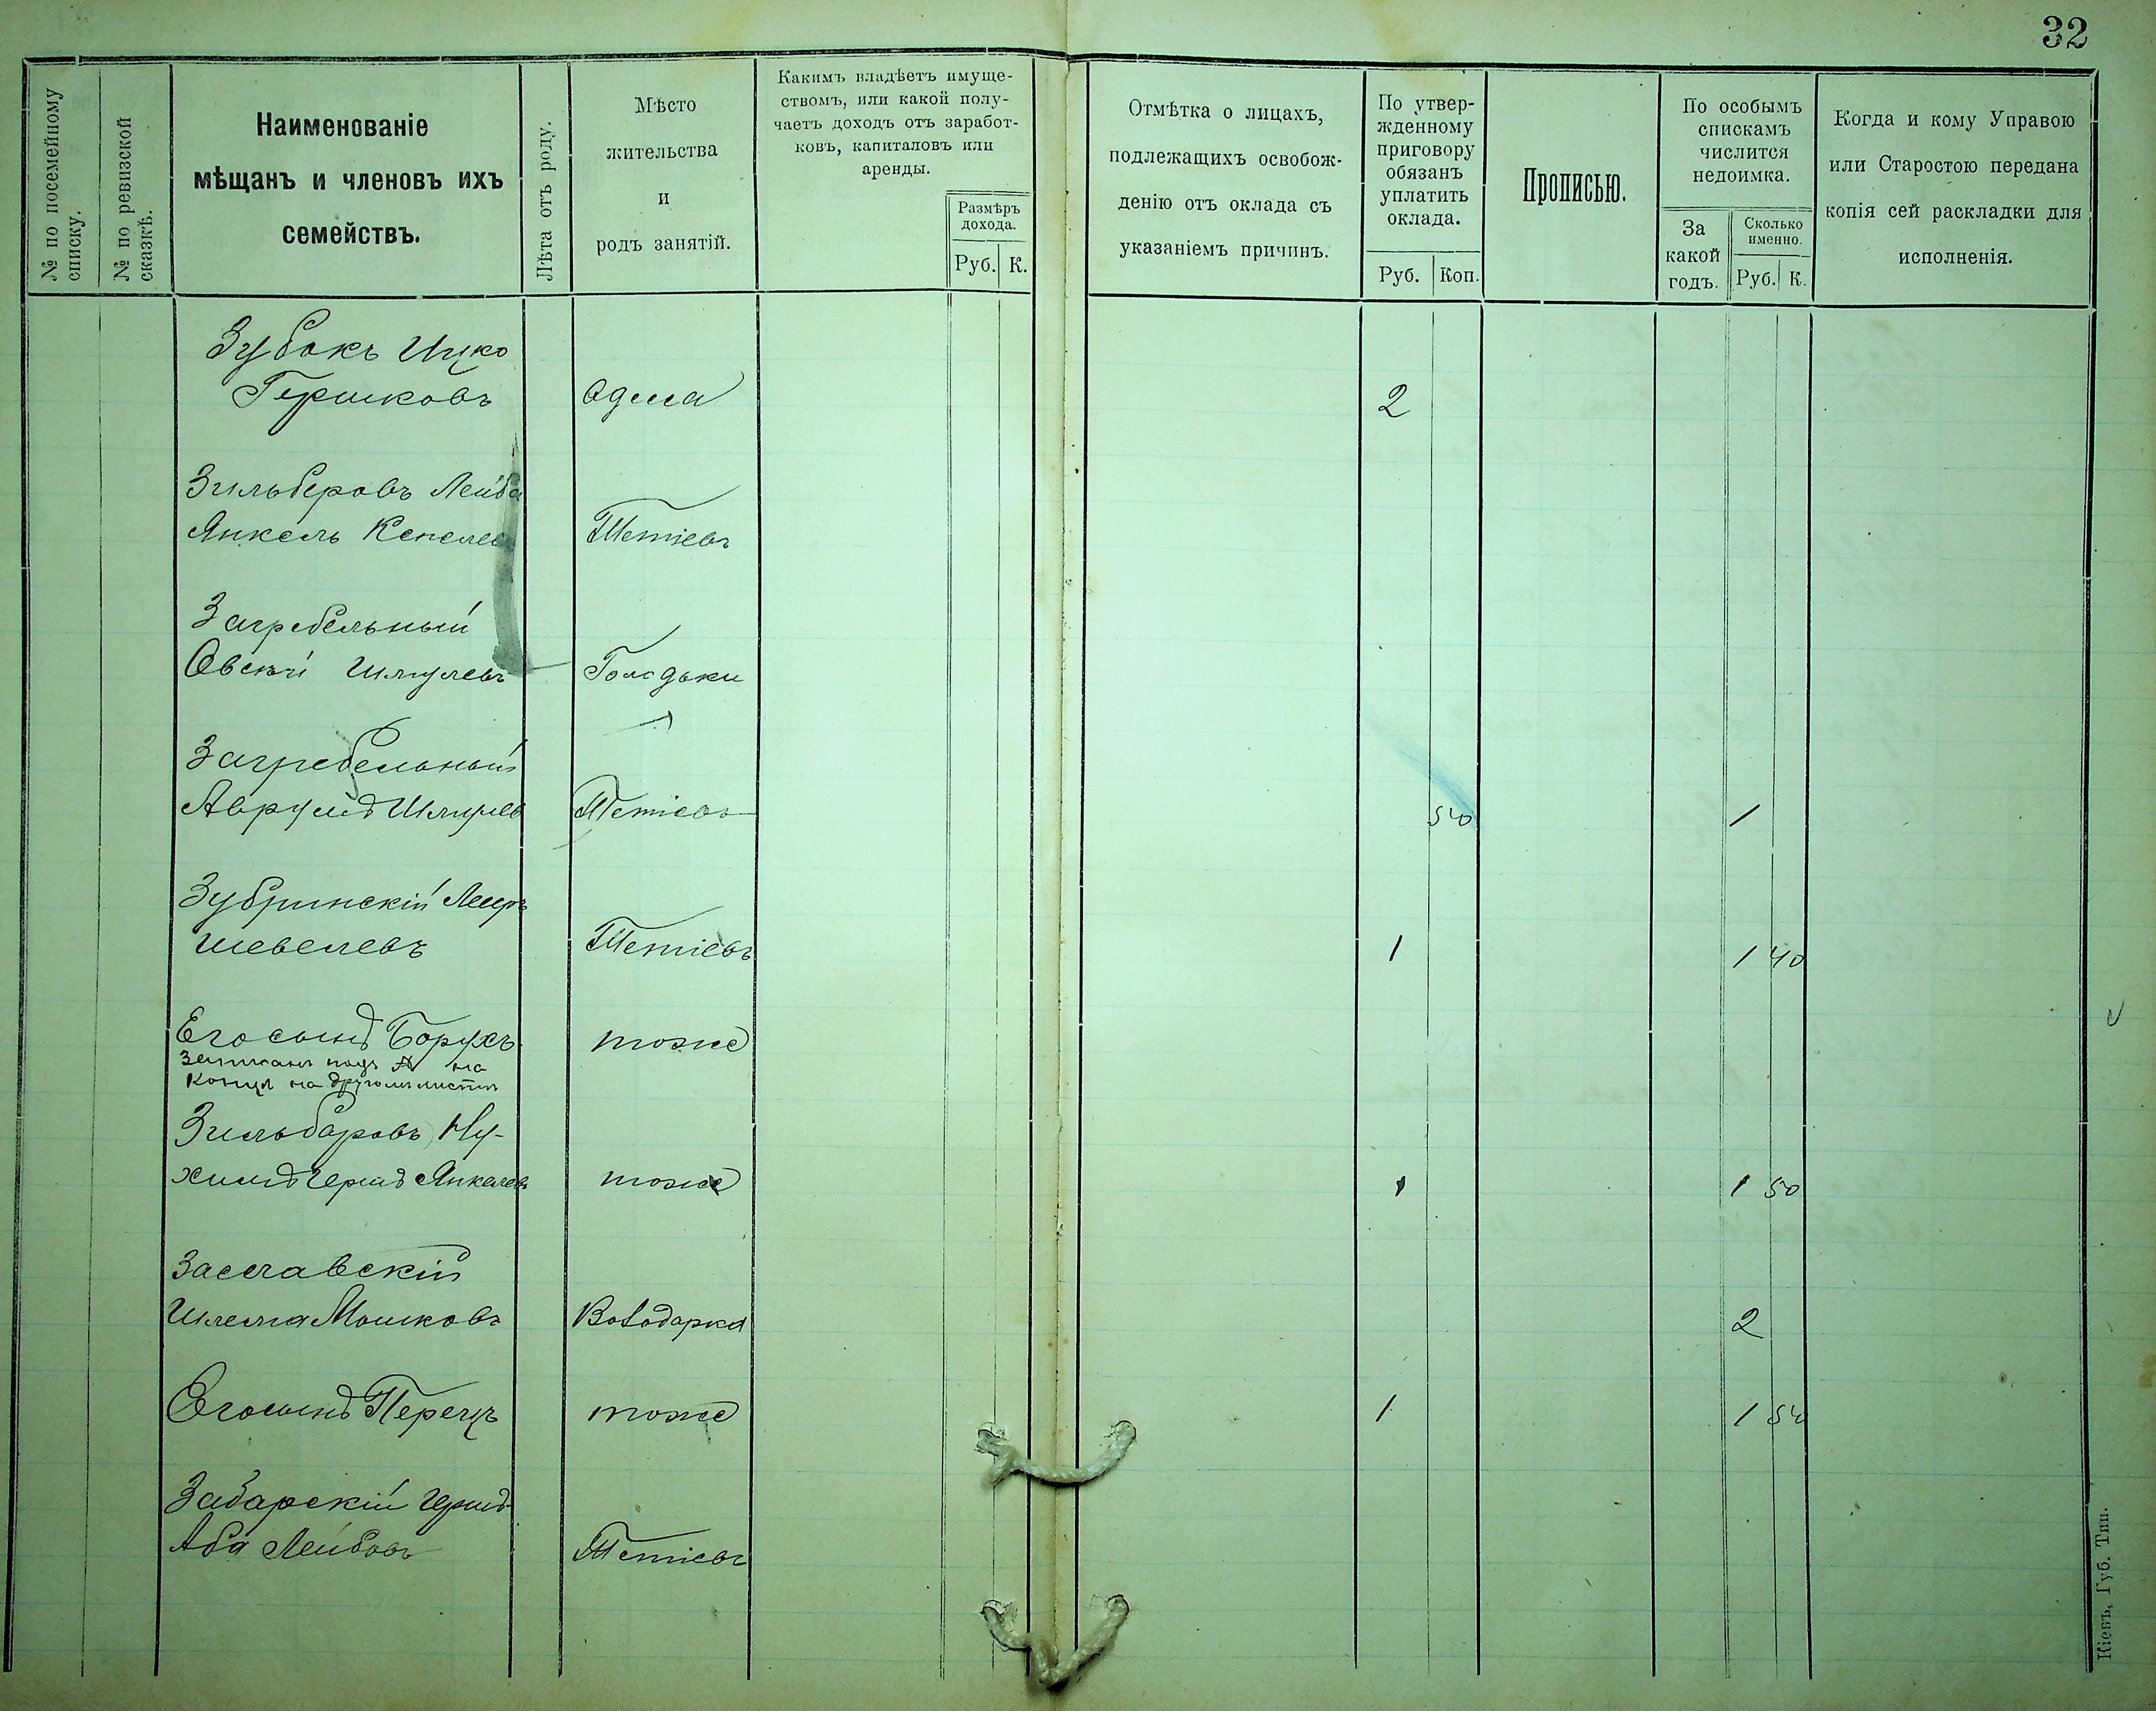 32
№ по посемейному списку.
№ по ревизской сказкѣ.
Наименованіе
мѣщанъ и членовъ ихъ
семействъ.
Лѣта отъ роду.
Мѣсто
жительства
и
родъ занятій.
Какимъ владѣетъ имуще-
ствомъ, или какой полу-
чаетъ доходъ отъ заработ-
ковъ, капиталовъ или
аренды.
Размѣръ
дохода.
Руб. К.
Отмѣтка о лицахъ,
подлежащихъ освобож-
денію отъ оклада съ
указаніемъ причинъ.
По утвер-
жденному
приговору
обязанъ
уплатить
оклада.
Руб. Коп.
Прописью.
По особымъ
спискамъ
числится
недоимка.
За
какой
годъ.
Сколько
именно.
Руб. К.
Когда и кому Управою
или Старостою передана
копія сей раскладки для
исполненія.
Зубокъ Ицко
Гершковъ Одесса 2
Зильберовъ Лейба
Янкель Тетіевъ
Загребельный
Овсѣй Шмулевъ Голодьки
Загребельный
Аврумъ Шмулев Тетіевъ 50 1
Зубринскій Меиръ
Шевелевъ Тетіевъ 1 1 40
Его сынъ Борухъ тоже
Записанъ подъ на
Концѣ на другомъ листѣ
Зильберовъ Ну-
химъ Гершъ Янкелев тоже 1 1 50
Заславскій
Шлема Мошковъ Володарка 2
Его сынъ Перецъ тоже 1 1 50
Забарскій Гершъ-
Аба Лейбовъ Тетіевъ
Кіевъ, Губ. Тип.